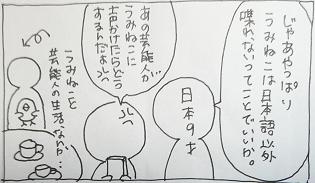 じゃあやっぱり
うみねこは日本語以外
喋れないってことでいいか。
日本の才
あの芸能人が
うみねこに
声かけたらどう
するんだよっ
うみねこと
芸能人の生活なんか…